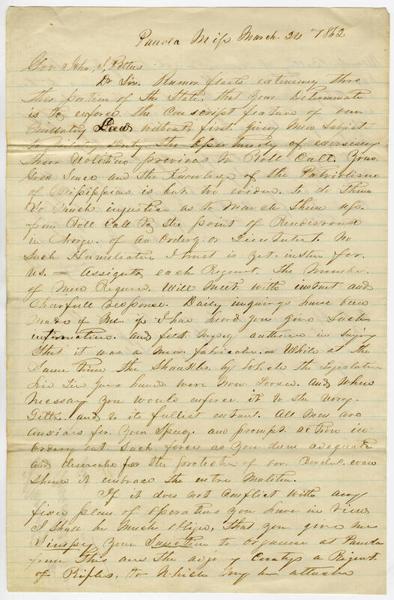 Panola Miss March 24th 1862
Gov John J. Pettus
Dr Sir Rumor floats extensively thro
this portion of the State, that your determinate
is to enforce the Conscript feature of our
Military Law without first giving men subject
to duty the opportunity of exercising
their volition previous to Roll Call. Your
Good Sence and the Knowledge of the Patriotism
of Mississippians is but too evident to do them
So much injustice as to march them up
from Roll Call to the point of Rendezvous
in charge of an Orderly or Lieutenant. No
Such Humiliation I trust is yet in store for
us. Assign to each Regment the number
of men Required will meet with instant and
Chearfull response. Daily inquirys have been
made of me if I had heard you give such
intimation and felt myself authorised in saying
that it was a mere fabrication. While at the
same time the Shackles by which the Legislature
had Tied your hands were now loosed and when
necessary you would enforce it to the very
letter and to its fullest extent. All men are
anxious for your Speedy and prompt action in
carrying out such force as you deem adequate
and desirable for the protection of our
should it embrace the entire Malitia.
If it does not conflict with any
fixed plans of operations you have in view
I shall be much oblige, that you give me
simply your Sanction to organise at Panola
from this and the adjoing Countys a Regment
of Rifles, to which may be attached